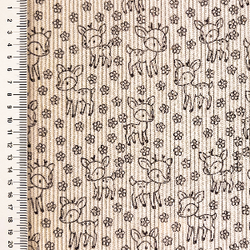 2
3
4
5
6
7
8
9
10
11
12
13
14
15
16
17
18
19
20